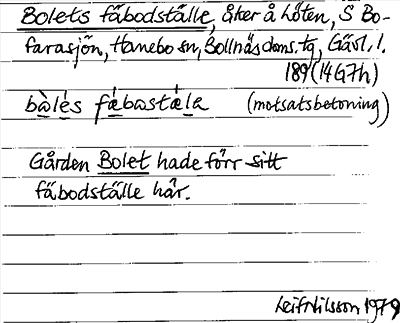 Bolets fäbodställe, åker å höten, S Bo-
farasjön, Hanebo sn, Bollnäs doms.tg, Gävl. l.
189 (14G7h)
bàlés fǽbastǽla (motsatsbetoning)
Gården Bolet hade förr sitt
fäbodställe här.
Leif Nilsson 1979